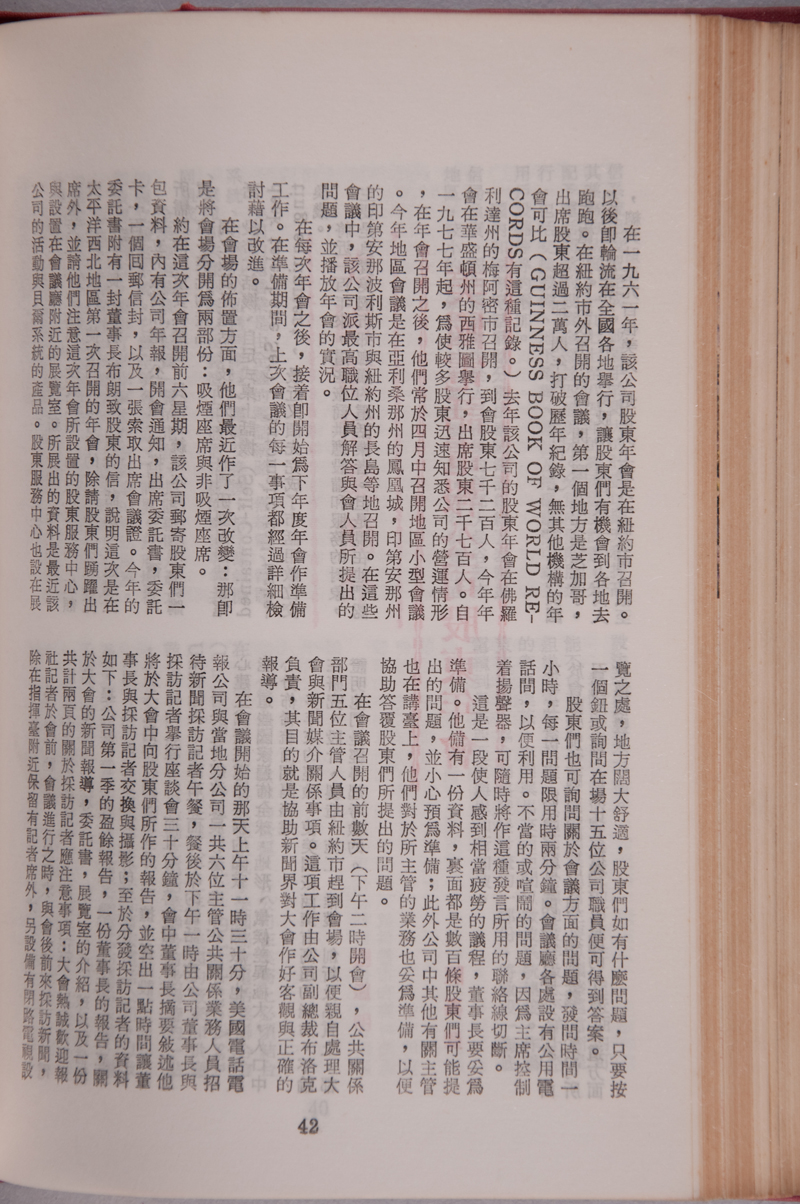 在一九六一年，該公司股東年會是在紐約市召開。
以後卽輪流在全國各地舉行，讓股東們有機會到各地去
跑跑。在紐約市外召開的會議，第一個地方是芝加哥，
出席股東超過二萬人，打破歷年紀錄，無其他機構的年
會可比（GUINNESS BOOK OF WORLD RE-
CORDS有這種記錄。）去年該公司的股東年會在佛羅
利達州的梅阿密市召開，到會股東七千二百人，今年年
會在華盛頓州的西雅圖舉行，出席股東二千七百人。自
一九七七年起，爲使較多股東迅速知悉公司的營運情形
，在年會召開之後，他們常於四月中召開地區小型會議
。今年地區會議是在亞利桑那州的鳳凰城，印第安那州
的印第安那波利斯市與紐約州的長島等地召開。在這些
會議中，該公司派最高職位人員解答與會人員所提出的
問題，並播放年會的實況。
在每次年會之後，接着卽開始爲下年度年會作準備
工作。在準備期間，上次會議的每一事項都經過詳細檢
討藉以改進。
在會場的佈置方面，他們最近作了一次改變：那卽
是將會場分開爲兩部份：吸煙座席與非吸煙座席。
約在這次年會召開前六星期，該公司郵寄股東們一
包資料，內有公司年報，開會通知，出席委託書，委託
卡，一個囘郵信封，以及一張索取出席會議證。今年的
委託書附有一封董事長布朗致股東的信，說明這次是在
太平洋西北地區第一次召開的年會，除請股東們踴躍出
席外，並請他們注意這次年會所設置的股東服務中心，
與設置在會議廳附近的展覽室。所展出的資料是最近該
公司的活動與貝爾系統的產品。股東服務中心也設在展
覽之處，地方闊大舒適，股東們如有什麼問題，只要按
一個鈕或詢問在場十五位公司職員便可得到答案。
股東們也可詢問關於會議方面的問題，發問時間一
小時，每一問題限用時兩分鐘。會議廳各處設有公用電
話間，以便利用。不當的或喧鬧的問題，因爲主席控制
着揚聲器，可隨時將作這種發言所用的聯絡線切斷。
這是一段使人感到相當疲勞的議程，董事長要妥爲
準備。他備有一份資料，裏面都是數百條股東們可能提
出的問題，並小心預爲準備；此外公司中其他有關主管
也在講臺上，他們對於所主管的業務也妥爲準備，以便
協助答覆股東們所提出的問題。
在會議召開的前數天（下午二時開會），公共關係
部門五位主管人員由紐約市趕到會場，以便親自處理大
會與新聞媒介關係事項。這項工作由公司副總裁布洛克
負責，其目的就是協助新聞界對大會作好客觀與正確的
報導。
在會議開始的那天上午十一時三十分，美國電話電
報公司與當地分公司一共六位主管公共關係業務人員招
待新聞採訪記者午餐，餐後於下午一時由公司董事長與
採訪記者舉行座談會三十分鐘，會中董事長摘要敍述他
將於大會中向股東們所作的報告，並空出一點時間讓董
事長與採訪記者交換與攝影；至於分發採訪記者的資料
如下：公司第一季的盈餘報告，一份董事長的報告，關
於大會的新聞報導，委託書，展覽室的介紹，以及一份
共計兩頁的關於採訪記者應注意事項：大會熱誠歡迎報
社記者於會前，會議進行之時，與會後前來採訪新聞，
除在指揮臺附近保留有記者席外，另設備有閉路電視設
42